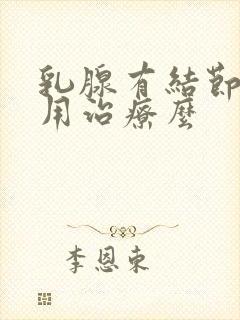 乳腺有結節
用治療麼
李恩東